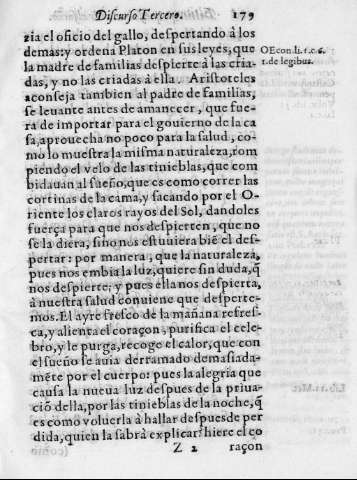 Discurso Tercero. 179
zia el oficio del gallo, despertando à los
demas: y ordena Platon en sus leyes, que
la madre de familias despierte à las cria-
das, y no las criadas à ella. Aristoteles
aconseja tambien al padre de familias,
se leuante antes de amanecer, que fue-
ra de importar para el gouierno de la ca
sa, aprouecha no poco para la salud, co-
mo lo muestra la misma naturaleza, rom
piendo el velo de las tinieblas, que com
bidauan al sueño, que es como correr las
cortinas de la cama, y sacando por el O-
riente los claros rayos del Sol, dandoles
fuerça para que nos despierten, que no
se la diera, sino nos estuuiera biē el des-
pertar: por manera, que la naturaleza,
pues nos embia la luz, quiere sin duda, q̃
nos despierte; y pues ella nos despierta,
à nuestra salud conuiene que desperte-
mos. El ayre fresco de la mañana refres-
ca, y alienta el coraçon, purifica el cele-
bro, y le purga, recoge el calor, que con
el sueño se auia derramado demasiada-
mēte por el cuerpo: pues la alegria que
causa la nueua luz despues de la priua-
ciō della, por las tinieblas de la noche, q̃
es como voluerla à hallar despues de per
dida, quien la sabrà explicar? hiere el co
Z 2 raçon
OEcon. li. 1. c. 6.
1. de legibus.